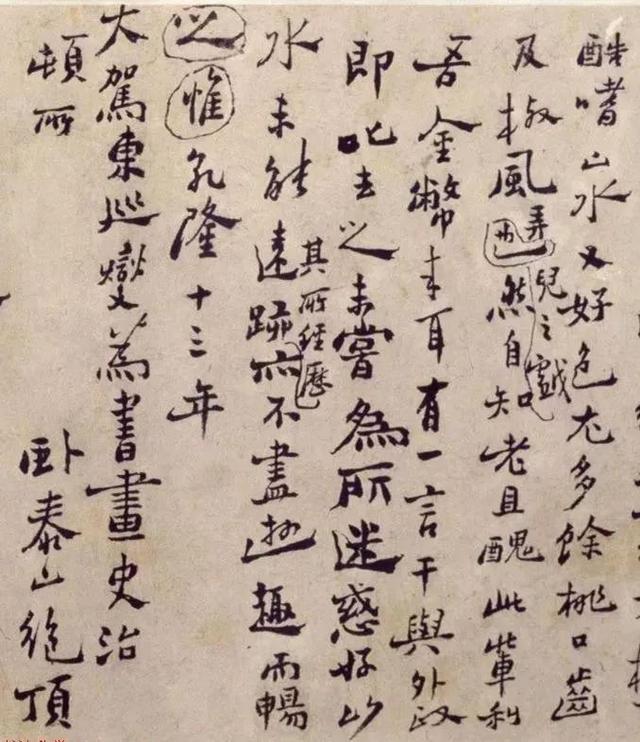 酷嗜山水又好色尤多餘桃口齒
弄兒之戲
及椒風然自知老且醜此輩利
吾金幣来耳有一言干與外政
即叱去之未嘗為所迷惑好山
其所経歷
水未能遠跡亦不盡遊趣而暢
之惟乾隆十三年
大駕東巡燮為書畫史治
頓所 卧泰山絶頂